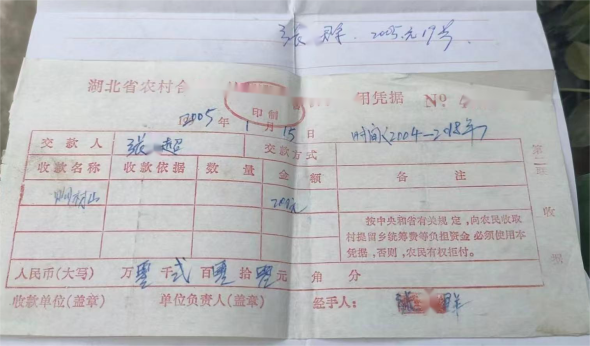 张 群. 2005.元19号.
湖北省农村合 用凭据 No
印制
2005年 1月15日 时间(2004—2018年)
交款人 张超 交款方式
收款名称 收款依据 数量 金额 备注
按中央和省有关规定,向农民收取
村提留乡统筹费等负担资金必须使用本
凭据,否则,农民有权拒付。
人民币(大写) 万 千 式 百 拾 元 角 分
收款单位(盖章) 单位负责人(盖章) 经手人: 群
第二联 收